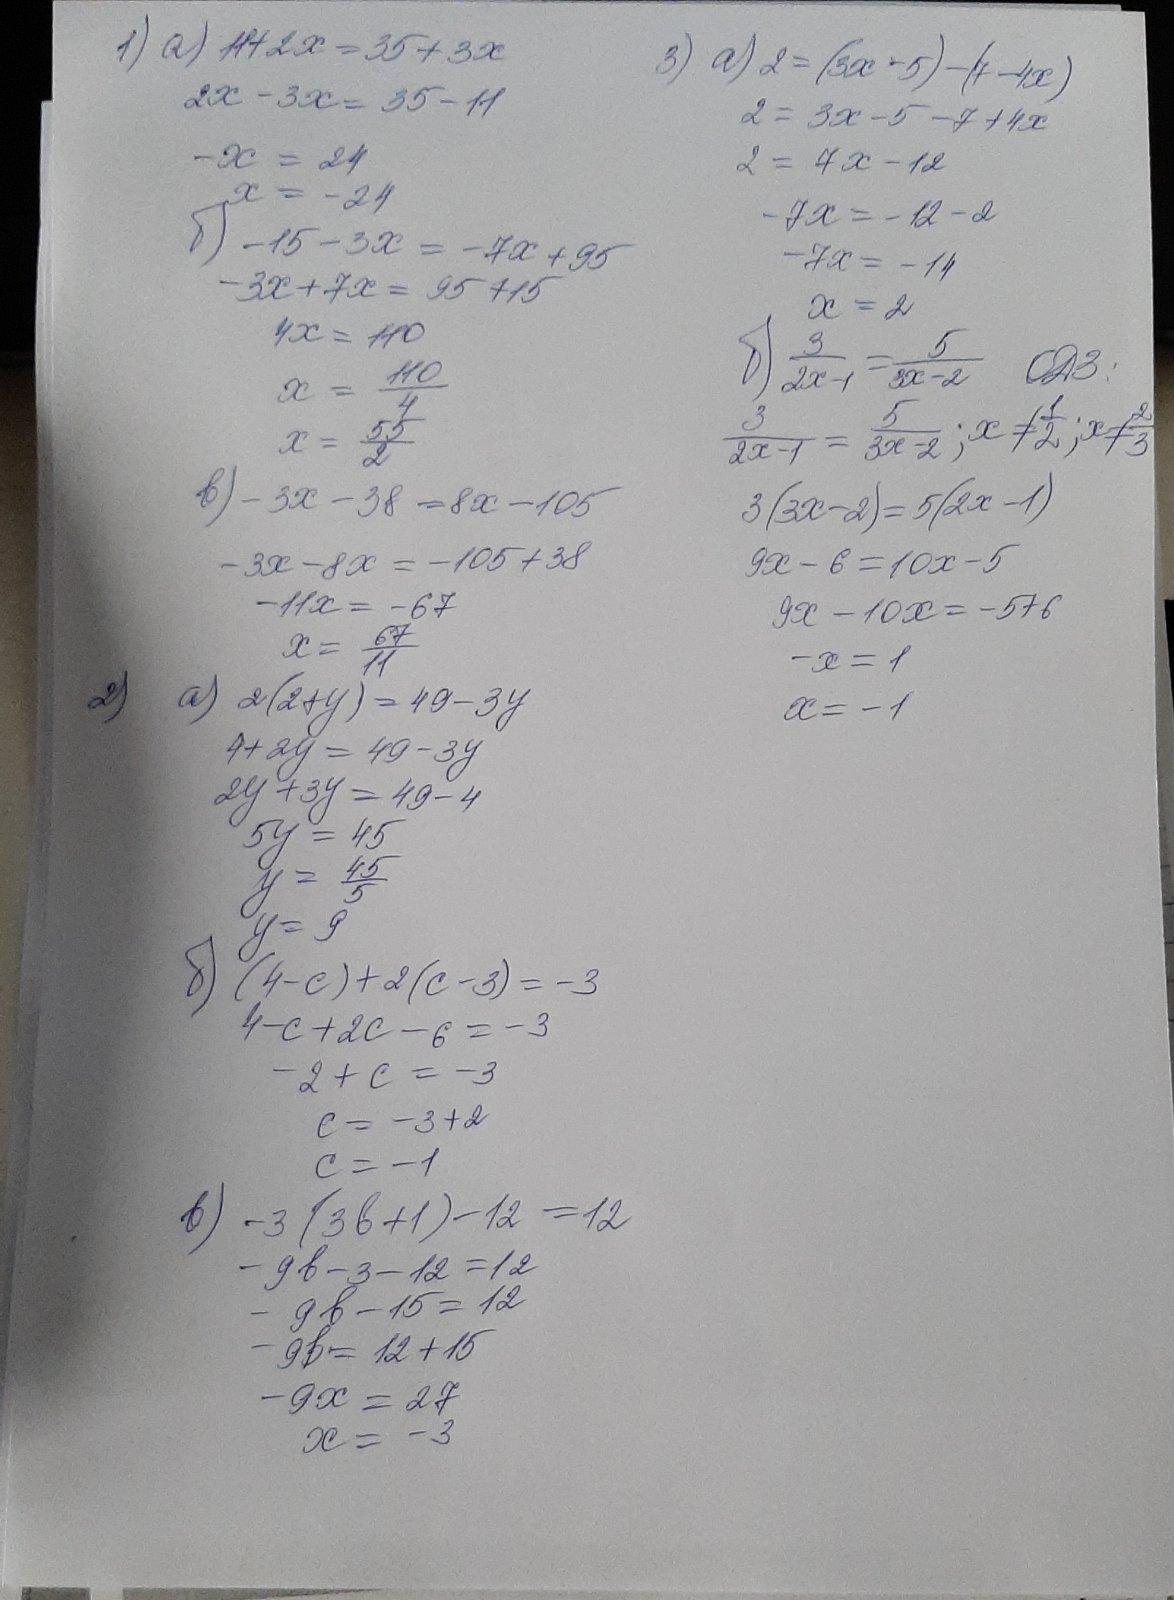 1) а) 11+2x=35+3x
2x-3x=35-11
-x=24
x=-24
б) -15-3x=-7x+95
-3x+7x=95+15
4x=110
x=110/4
x=55/2
в) -3x-38=8x-105
-3x-8x=-105+38
-11x=-67
x=67/11
2) а) 2(2+y)=49-3y
4+2y=49-3y
2y+3y=49-4
5y=45
y=45/5
y=9
б) (4-c)+2(c-3)=-3
4-c+2c-6=-3
-2+c=-3
c=-3+2
c=-1
в) -3(3b+1)-12=12
-9b-3-12=12
-9b-15=12
-9b=12+15
-9x=27
x=-3
3) а) 2=(3x-5)-(7-4x)
2=3x-5-7+4x
2=7x-12
-7x=-12-2
-7x=-14
x=2
б) 3/(2x-1)=5/(3x-2) ОДЗ:
3/(2x-1)=5/(3x-2); x≠1/2; x≠2/3
3(3x-2)=5(2x-1)
9x-6=10x-5
9x-10x=-5+6
-x=1
x=-1